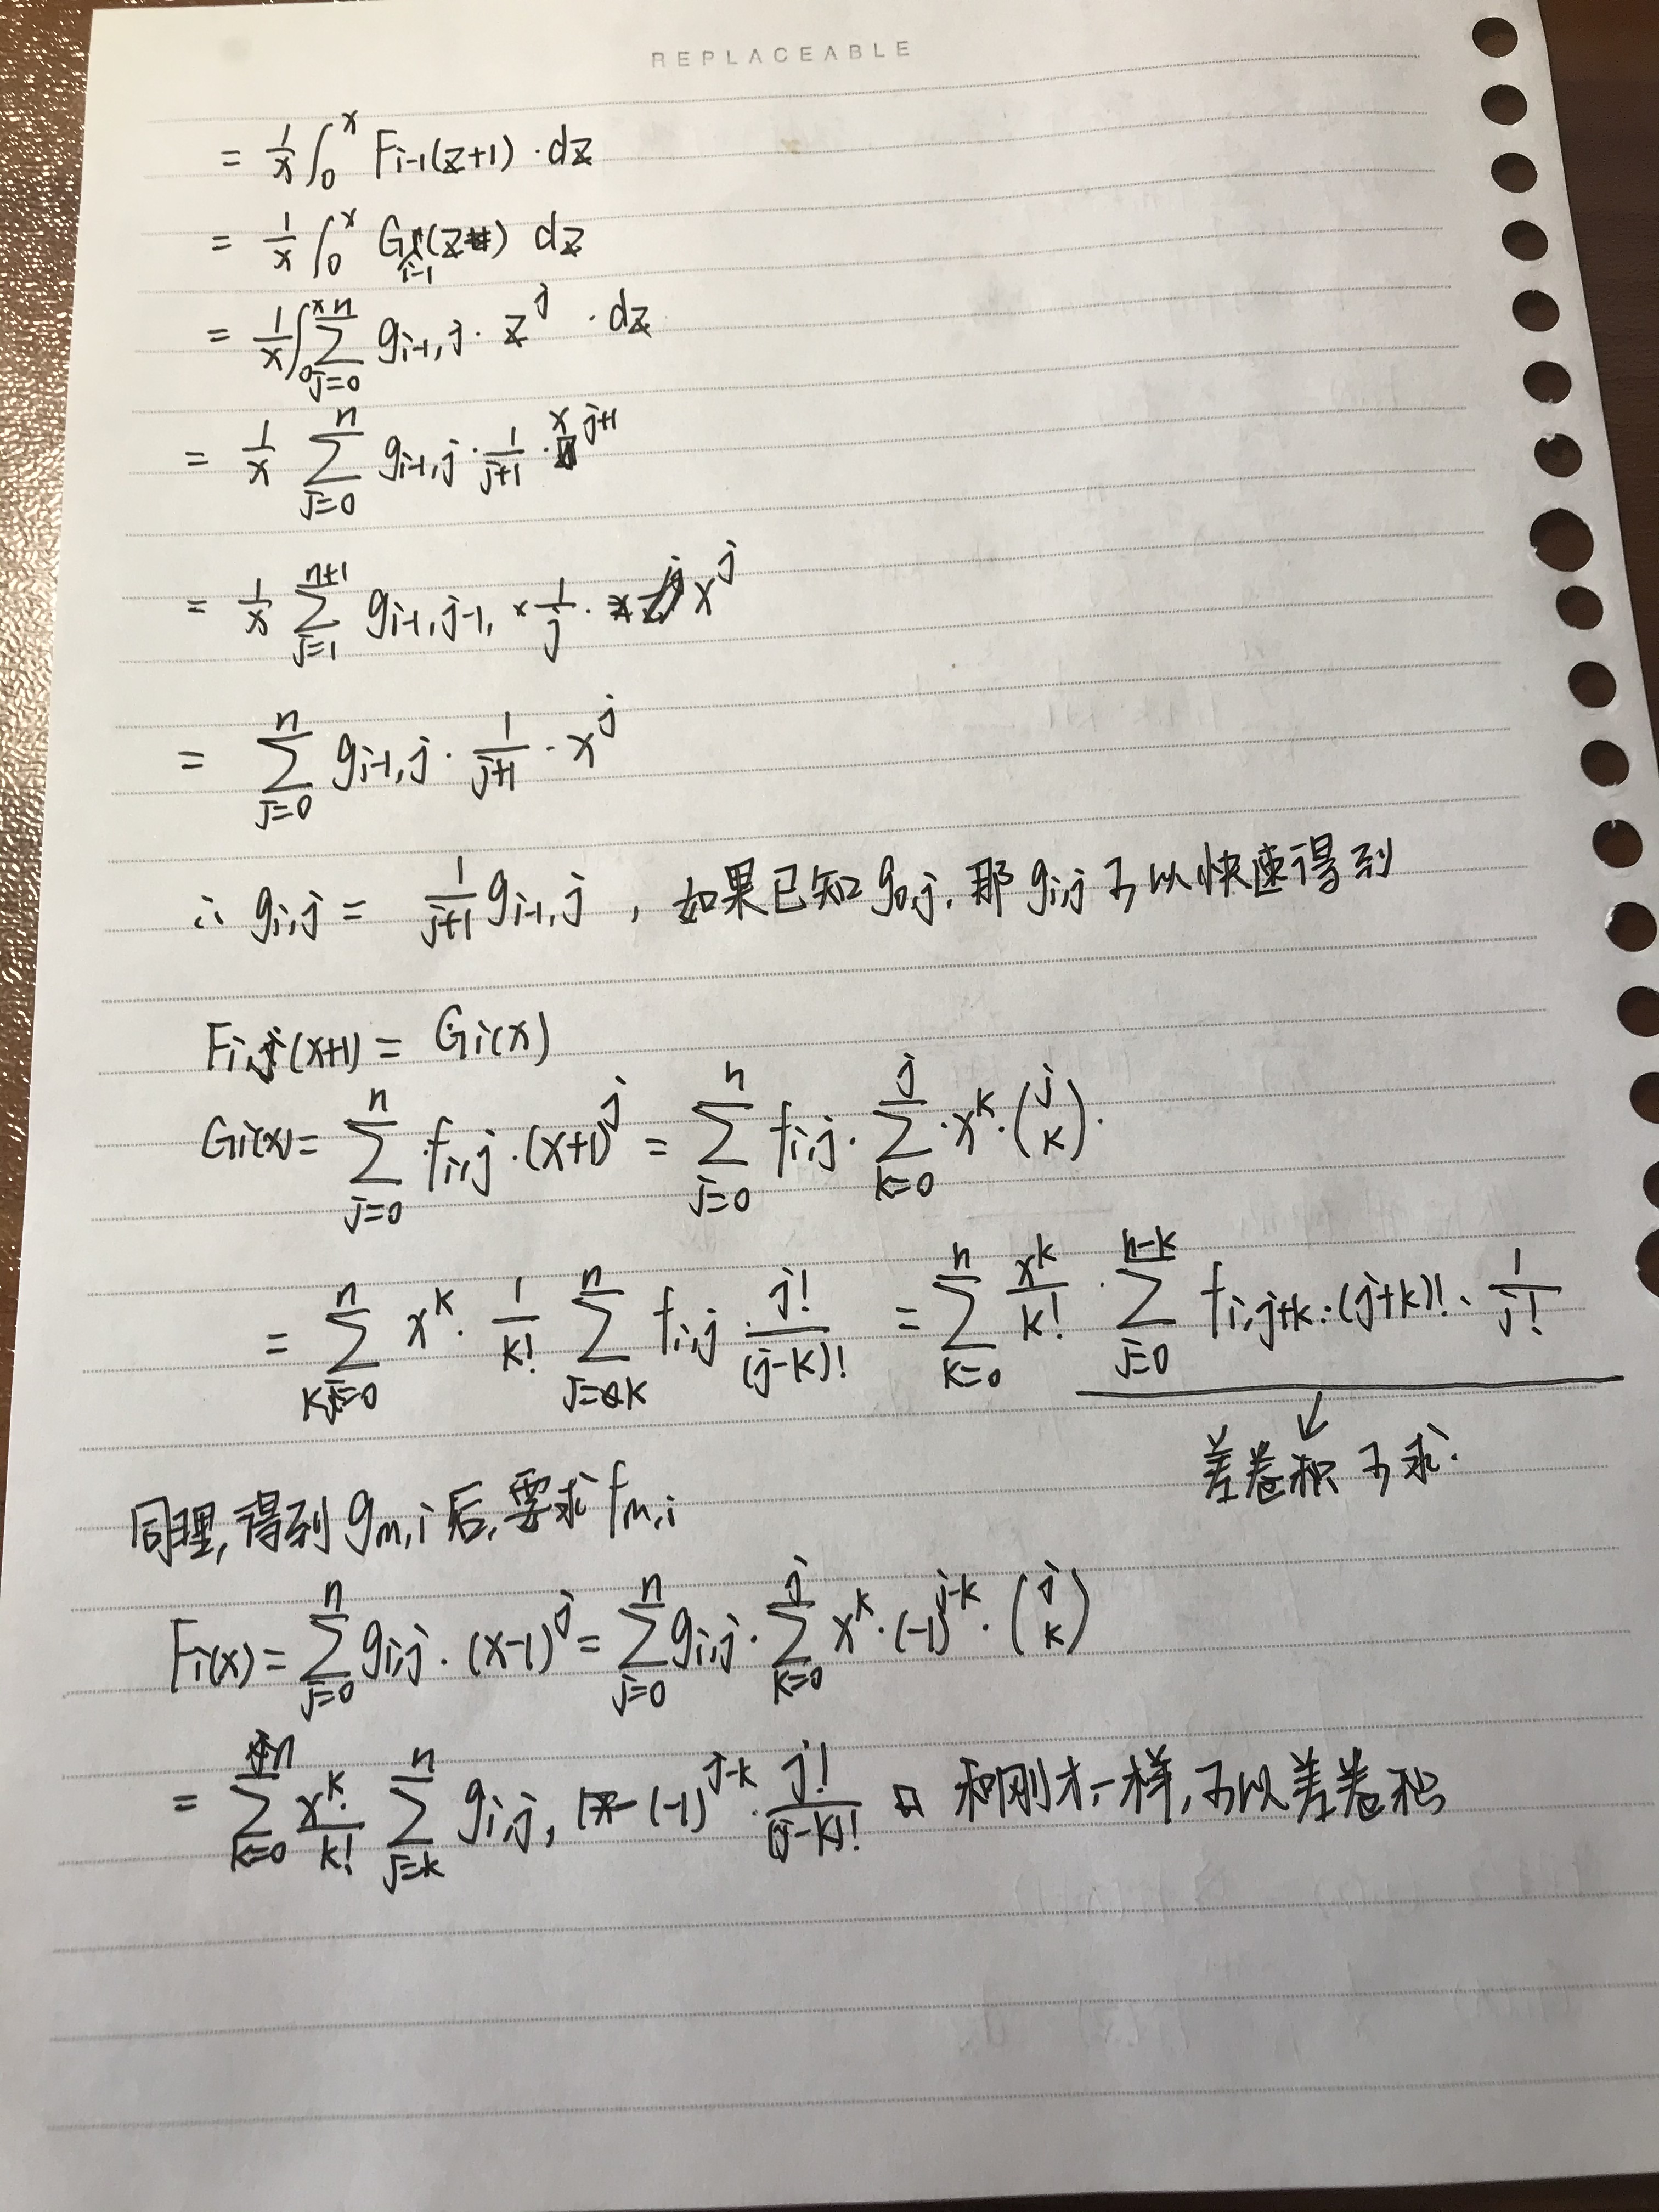 REPLACEABLE
= \frac{1}{x} \int_0^x F_{i-1}(z+1) · dz
= \frac{1}{x} \int_0^x G_{i-1}(z) dz
= \frac{1}{x} \int_0^x \sum_{j=0}^{n} g_{i-1,j} · z^j · dz
= \frac{1}{x} \sum_{j=0}^{n} g_{i-1,j} · \frac{1}{j+1} · x^{j+1}
= \frac{1}{x} \sum_{j=1}^{n+1} g_{i-1,j-1} × \frac{1}{j} · x^j
= \sum_{j=0}^{n} g_{i-1,j} · \frac{1}{j+1} · x^j
∴ g_{i,j} = \frac{1}{j+1} g_{i-1,j} , 如果已知 g_{0,j}, 那 g_{i,j} 可以快速得到
F_i(x+1) = G_i(x)
G_i(x) = \sum_{j=0}^{n} f_{i,j} · (x+1)^j = \sum_{j=0}^{n} f_{i,j} · \sum_{k=0}^{j} · x^k · \binom{j}{k} ·
= \sum_{k=0}^{n} x^k · \frac{1}{k!} \sum_{j=k}^{n} f_{i,j} · \frac{j!}{(j-k)!} = \sum_{k=0}^{n} \frac{x^k}{k!} · \sum_{j=0}^{n-k} f_{i,j+k} · (j+k)! · \frac{1}{j!}
↓
差卷积可求.
同理, 得到 g_{m,i} 后, 要求 f_{m,i}
F_i(x) = \sum_{j=0}^{n} g_{i,j} · (x-1)^j = \sum_{j=0}^{n} g_{i,j} · \sum_{k=0}^{j} x^k · (-1)^{j-k} · \binom{j}{k}
= \sum_{k=0}^{n} \frac{x^k}{k!} \sum_{j=k}^{n} g_{i,j} · (-1)^{j-k} · \frac{j!}{(j-k)!} 和刚才一样, 可以差卷积